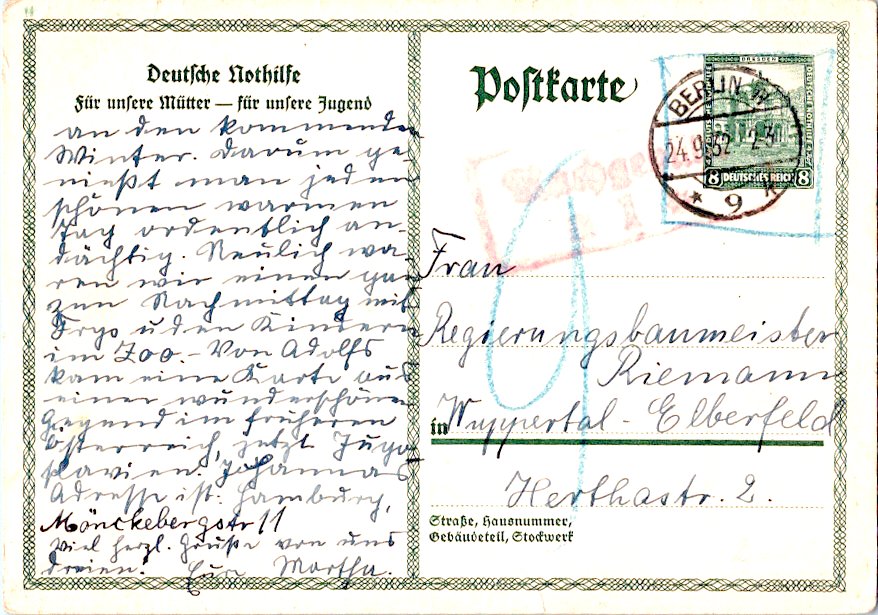 Deutsche Nothilfe
Für unsere Mütter — für unsere Jugend
an den kommenden
Winter. Darum ge-
nießt man jeden
schönen warmen
Tag ordentlich an-
dächtig. Neulich wa-
ren wir einen gan-
zen Nachmittag mit
u den Kindern
im Zoo. – Von Adolfs
kam eine Karte aus
einer wunderschönen
Gegend im früheren
Österreich, jetzt Jugo-
slavien. Johannas
Adresse ist: Hamburg,
Mönckebergstr 11
Viel herzl. Grüße von uns
dreien. Eure Martha.
Postkarte
DRESDEN
8 DEUTSCHES REICH 8
BERLIN W
24.9.32. 2-3
* 9
Nachgebühr
9
Frau
Regierungsbaumeister
Riemann
in Wuppertal - Elberfeld
Herthastr. 2.
Straße, Hausnummer,
Gebäudeteil, Stockwerk